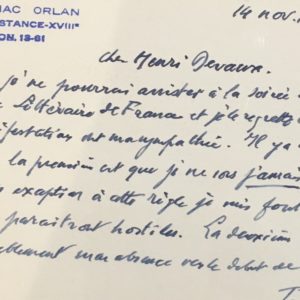 MAC ORLAN
STANCE-XVIII"
ON. 13-81
14 nov.
cher Henri Devaux.
je ne pourrai assister à la soirée
Littéraire de France et je le regrette
ifestations ont ma sympathie. Il y a
la première est que je ne vois jamais
exception à cette règle je me
paraitront hostiles. La deuxième
mon absence vers le début de